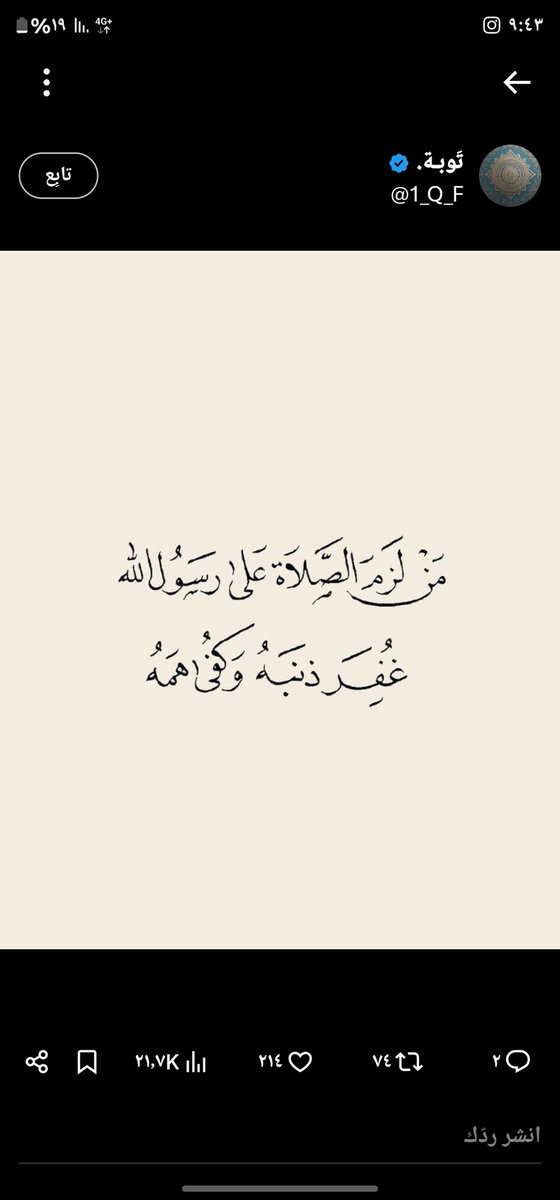 ٩:٤٣
%١٩ 4G+
تَوبـة.
@1_Q_F
تابِع
مَنْ لَزِمَ الصَّلَاةَ عَلىٰ رسَوُل الله
غُفِرَ ذنبَهُ وَكُفىٰ همَهُ
٢ ٧٤ ٢١٤ ٢١,٧K
انشر ردّك